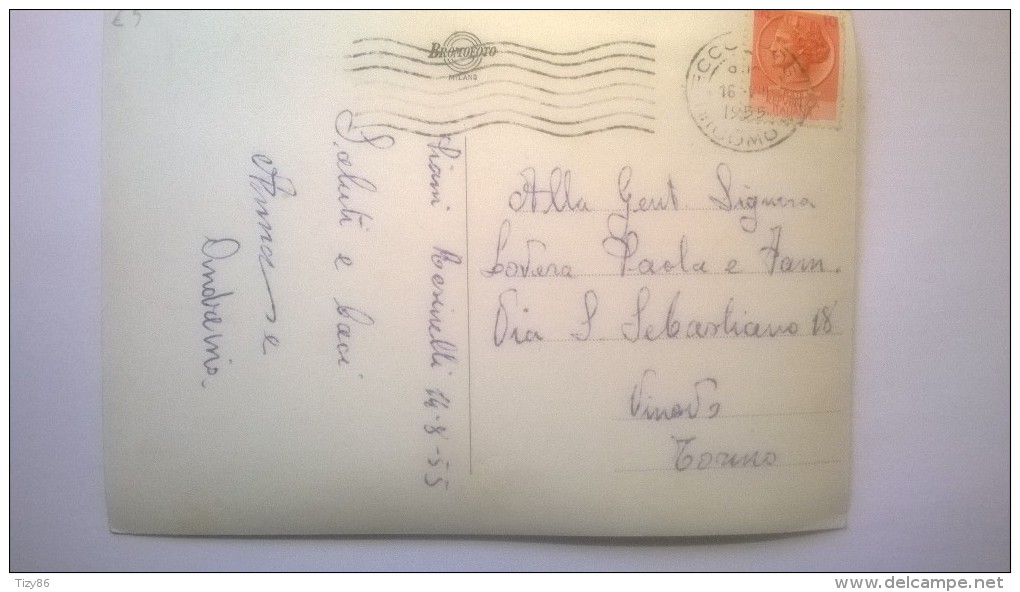 £ 9
BROMOFOTO
MILANO
16
1955
COMO
Piani Resinelli 14-8-55
Saluti e baci
Anna e
Alla Gent. Signora
Lovera Paola e Fam.
Via S. Sebastiano 18
Vinovo
Torino
Tizy86
www.delcampe.net